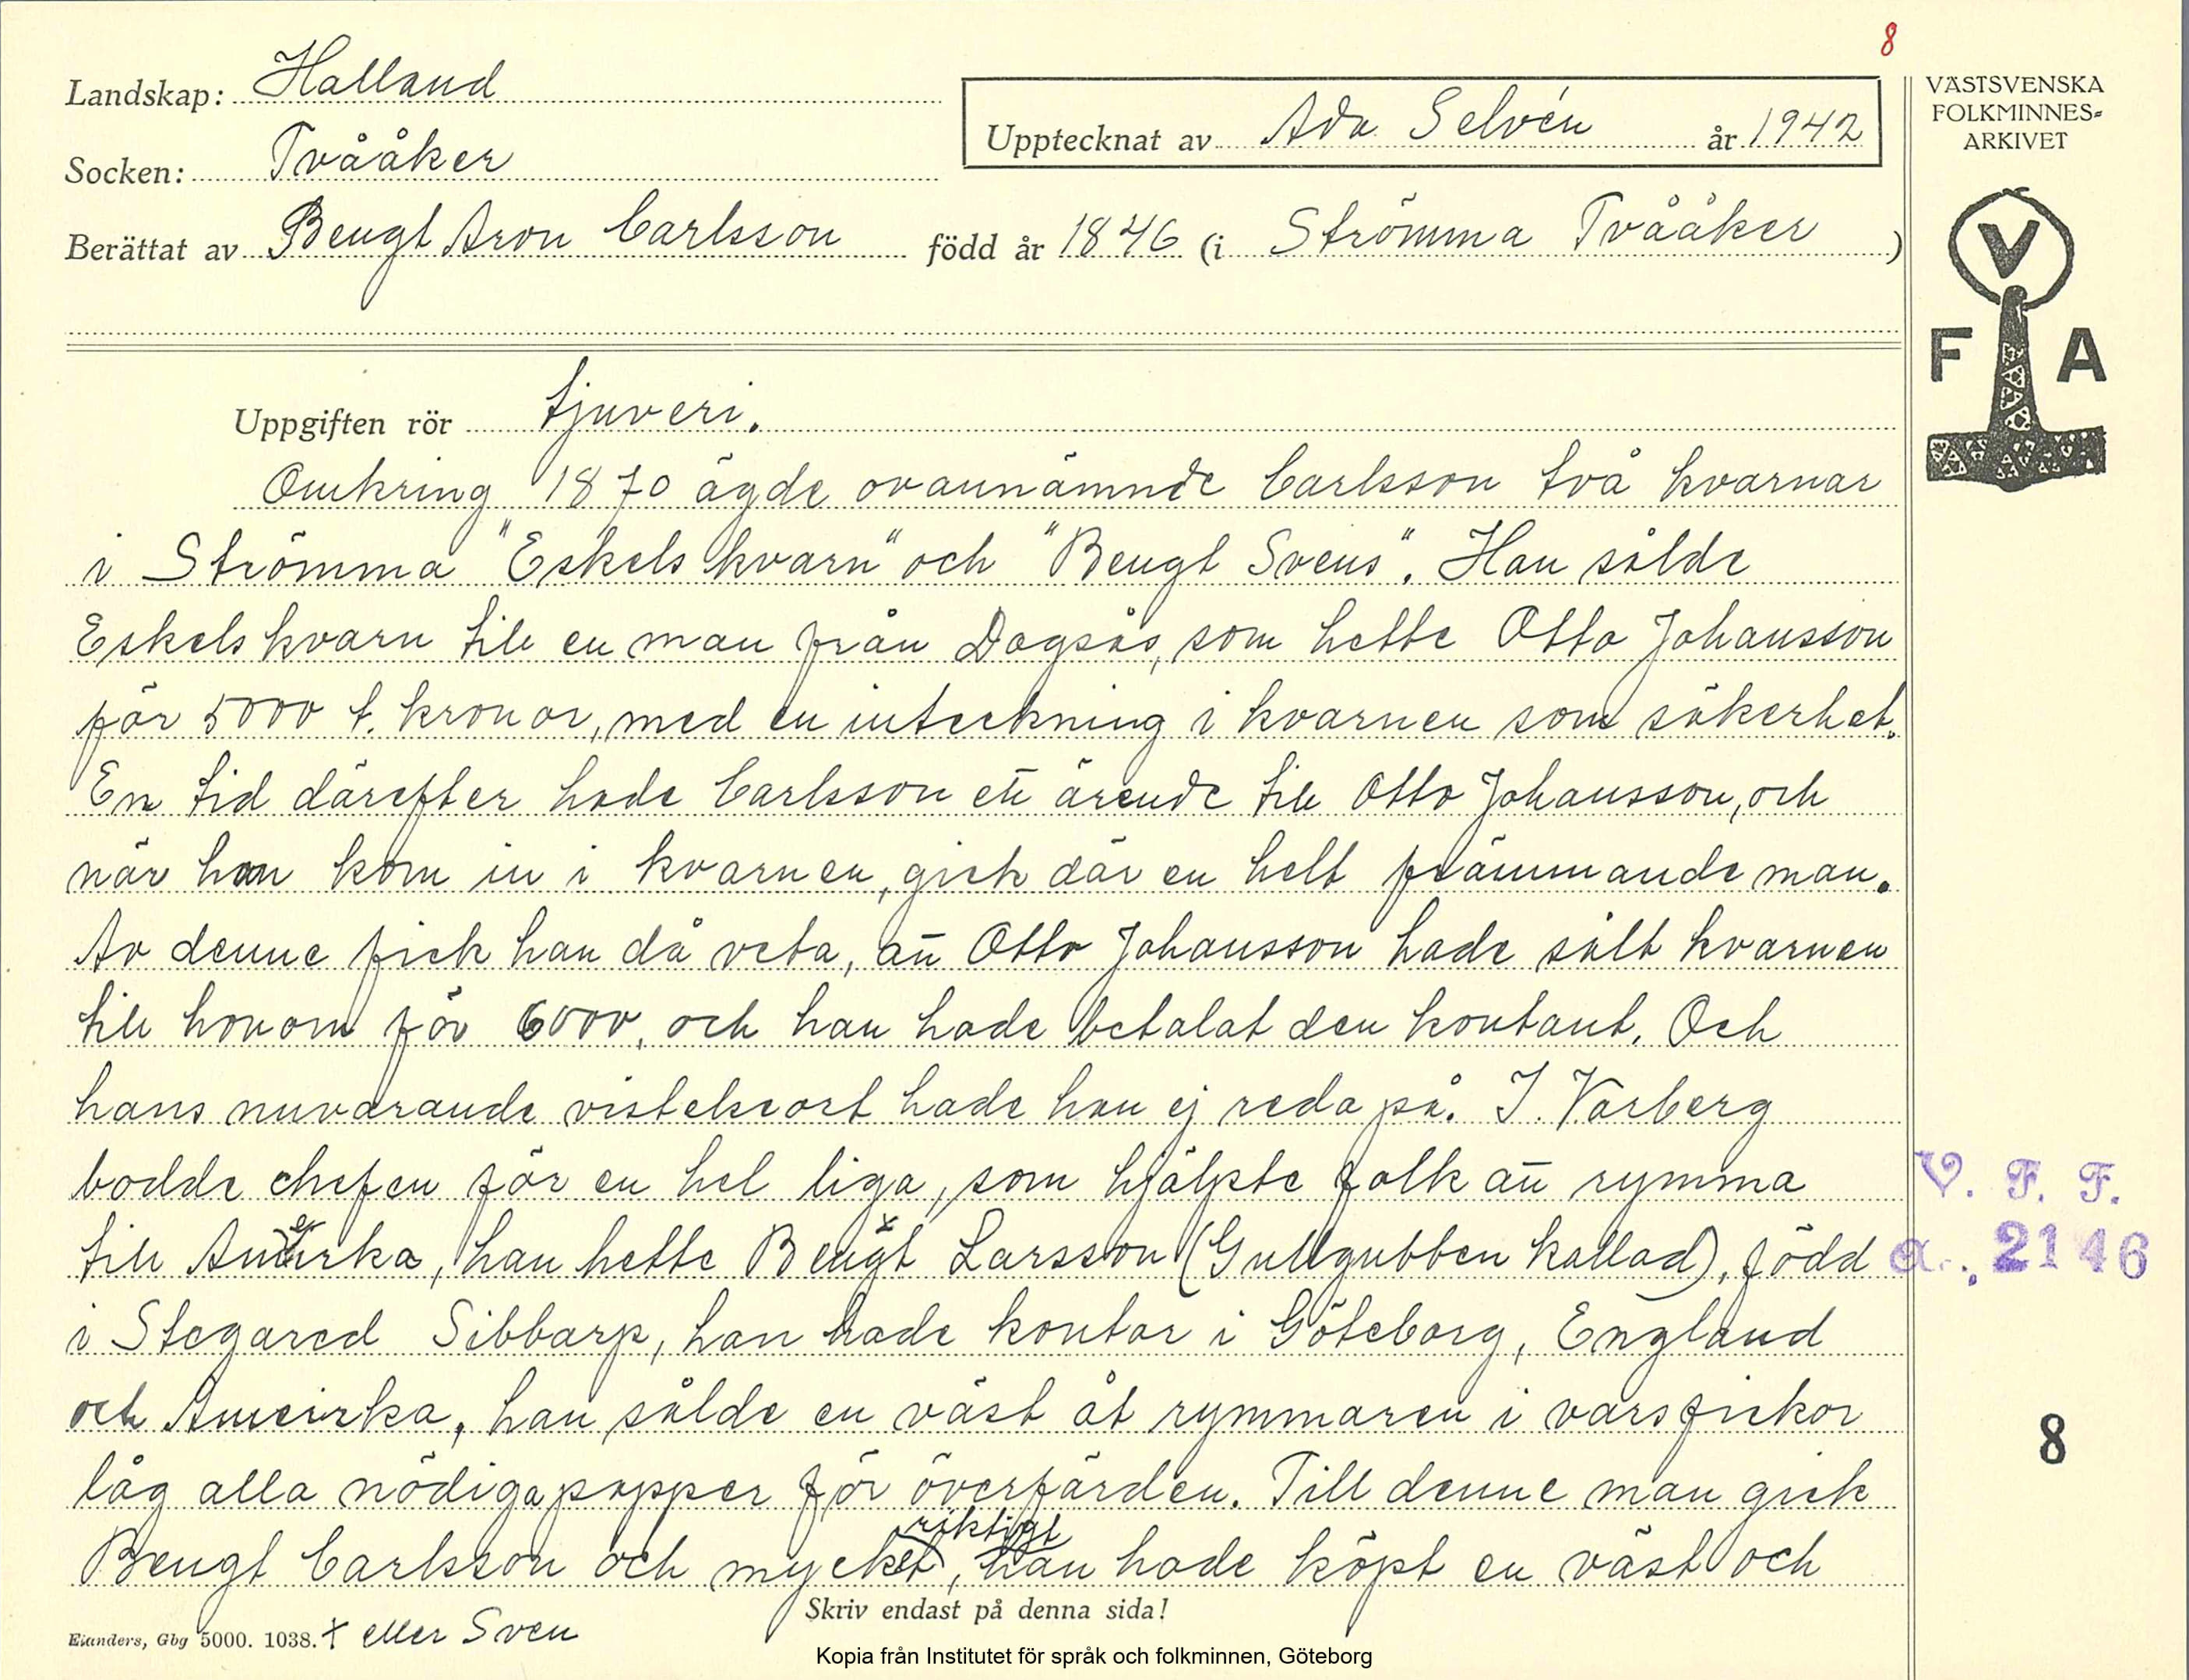 8
Landskap: Halland
Socken: Tvååker
Upptecknat av Ada Selvén år 1942
Berättat av Bengt Aron Carlsson född år 1846 (i Strömma Tvååker )
VÄSTSVENSKA
FOLKMINNES=
ARKIVET
V
F A
Uppgiften rör tjuveri.
Omkring 1870 ägde ovannämnde Carlsson två kvarnar
i Strömma "Eskels kvarn" och "Bengt Svens". Han sålde
Eskels kvarn till en man från Dagsås, som hette Otto Johansson
för 5000 t. kronor, med en inteckning i kvarnen som säkerhet.
En tid därefter hade Carlsson ett ärende till Otto Johansson, och
när han kom in i kvarnen, gick där en helt främmande man.
Av denne fick han då veta, att Otto Johansson hade sålt kvarnen
till honom för 6000, och han hade betalat den kontant. Och
hans nuvarande vistelseort hade han ej reda på. I Varberg
bodde chefen för en hel liga, som hjälpte folk att rymma
till Amerka, han hette Bengt x Larsson (Gullgubben kallad), född
i Stegared Sibbarp, han hade kontor i Göteborg, England
och Ameirka, han sålde en väst åt rymmaren i vars fickor
låg alla nödiga papper för överfärden. Till denne man gick
Bengt Carlsson och mycket riktigt, han hade köpt en väst och
V. F. F.
a. 2146
8
Skriv endast på denna sida!
Elanders, Gbg 5000. 1038. x eller Sven
Kopia från Institutet för språk och folkminnen, Göteborg